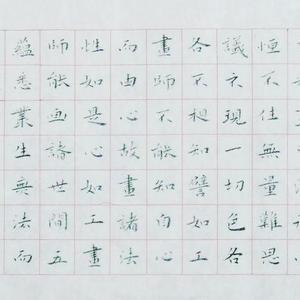 恒不住無量難思
議示現一切色各
各不相知譬如工
畫師不能知自心
而由心故畫諸法
性如是心如工畫
師能画諸世間五
蘊悉業生無法而